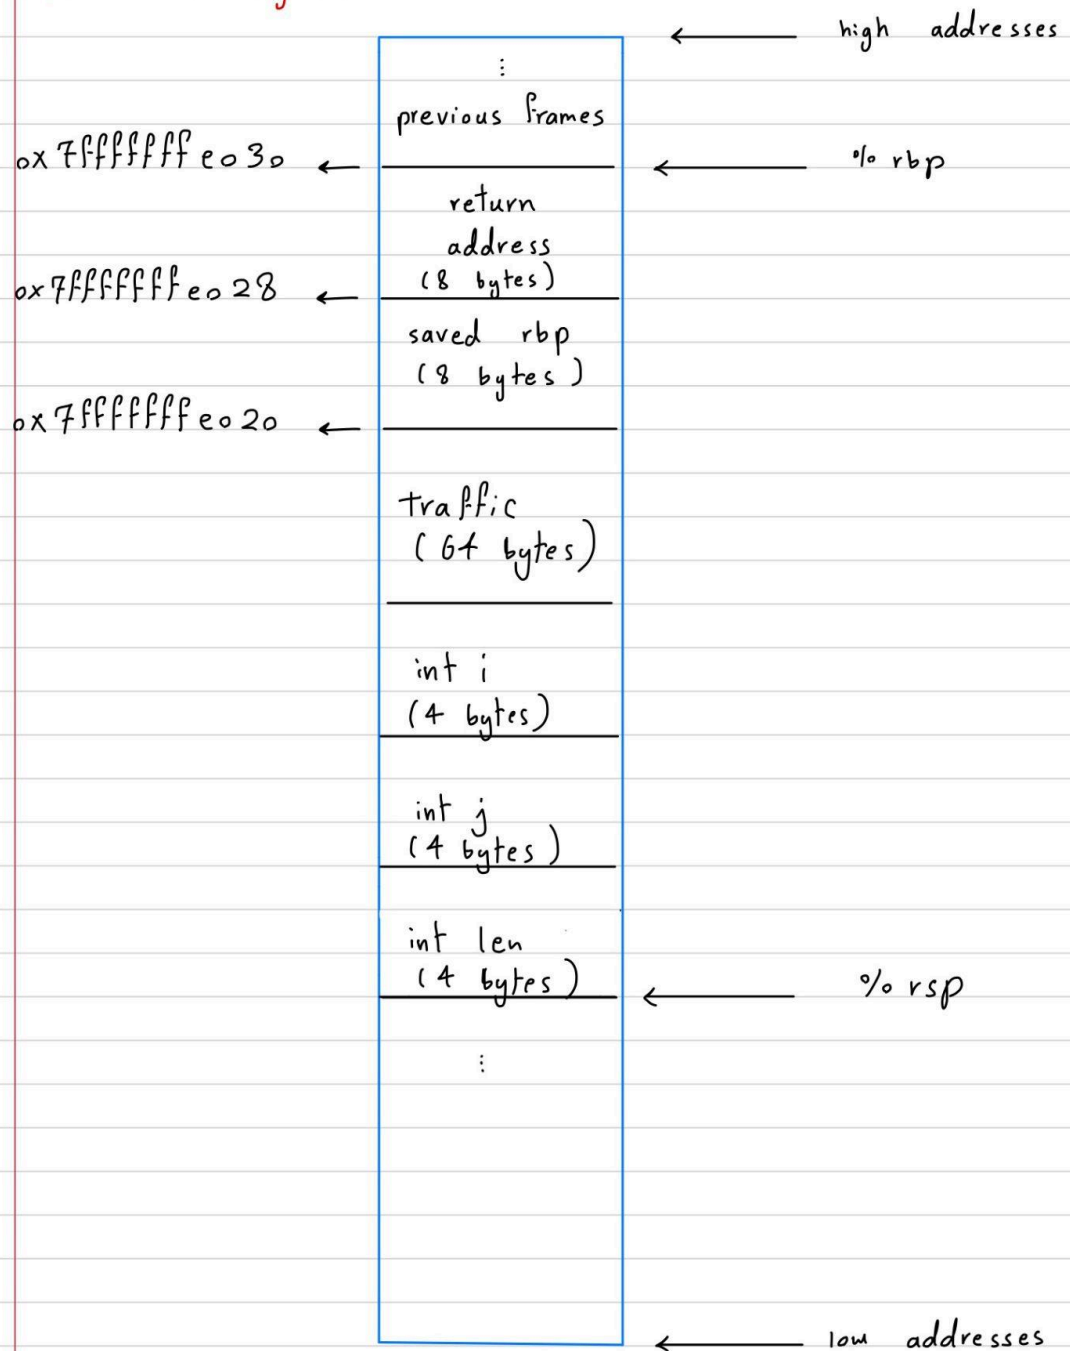 high addresses
⋮
previous frames
0x7fffffffe030
% rbp
return
address
(8 bytes)
0x7fffffffe028
saved rbp
(8 bytes)
0x7fffffffe020
traffic
(64 bytes)
int i
(4 bytes)
int j
(4 bytes)
int len
(4 bytes)
% rsp
⋮
low addresses